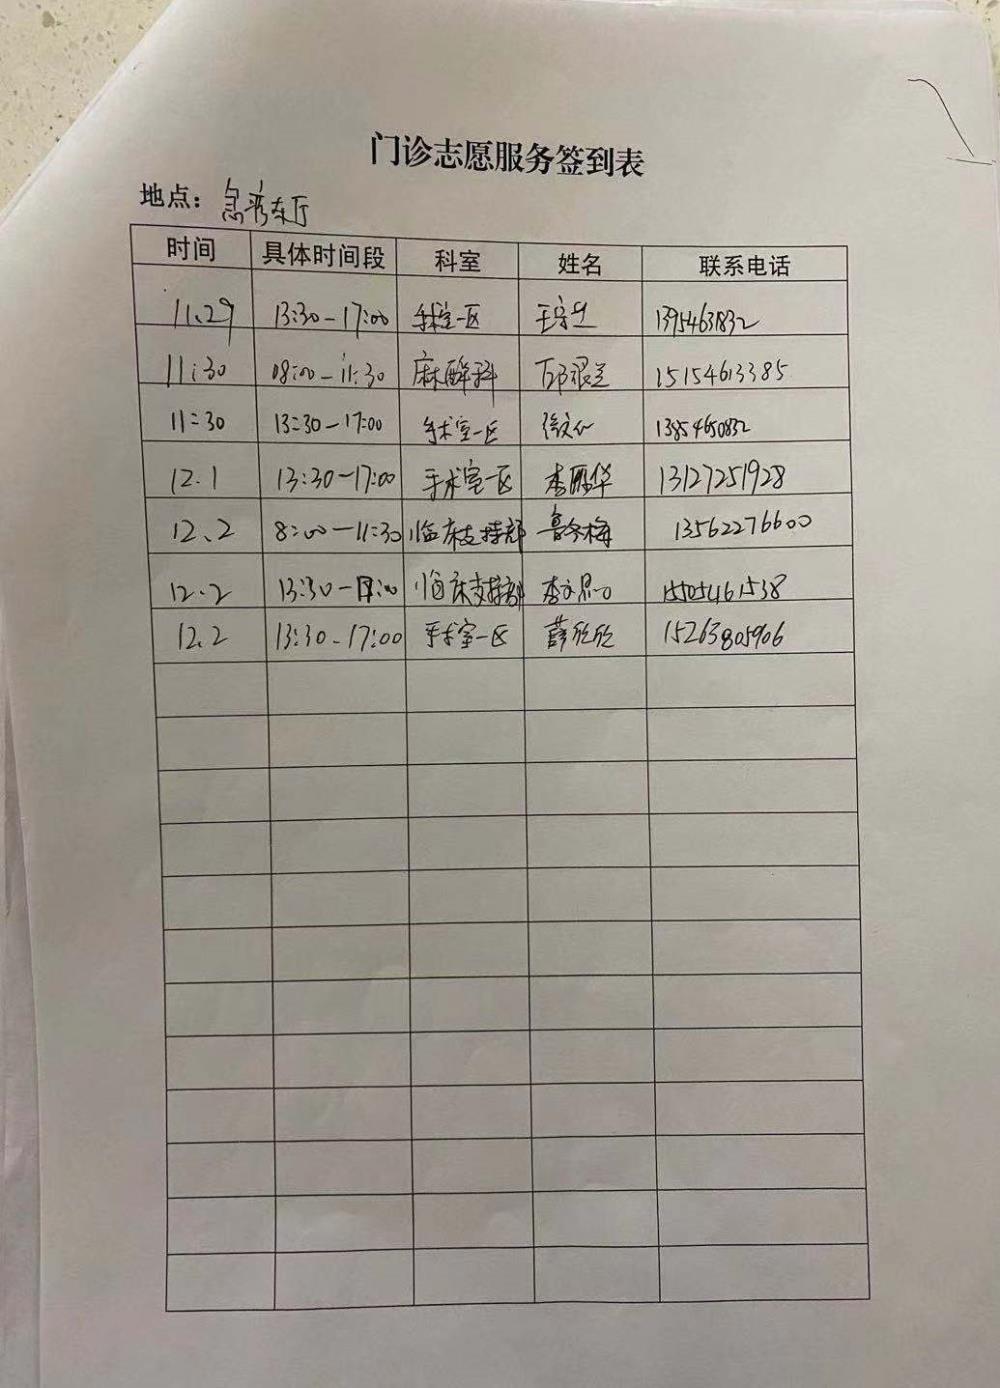 门诊志愿服务签到表
地点：急诊东厅
时间 具体时间段 科室 姓名 联系电话
11.29 13:30-17:00 手术室一区
11:30 08:00-11:30 麻醉科 15154613385
11:30 13:30-17:00 手术室一区
12.1 13:30-17:00 手术室一区 李丽华 13127251928
12、2 8:00-11:30 临床支持部 鲁冬梅 13562276600
12.2 13:30-17:00 临床支持部 15505461538
12.2 13:30-17:00 手术室一区 薛欣欣 15263805906